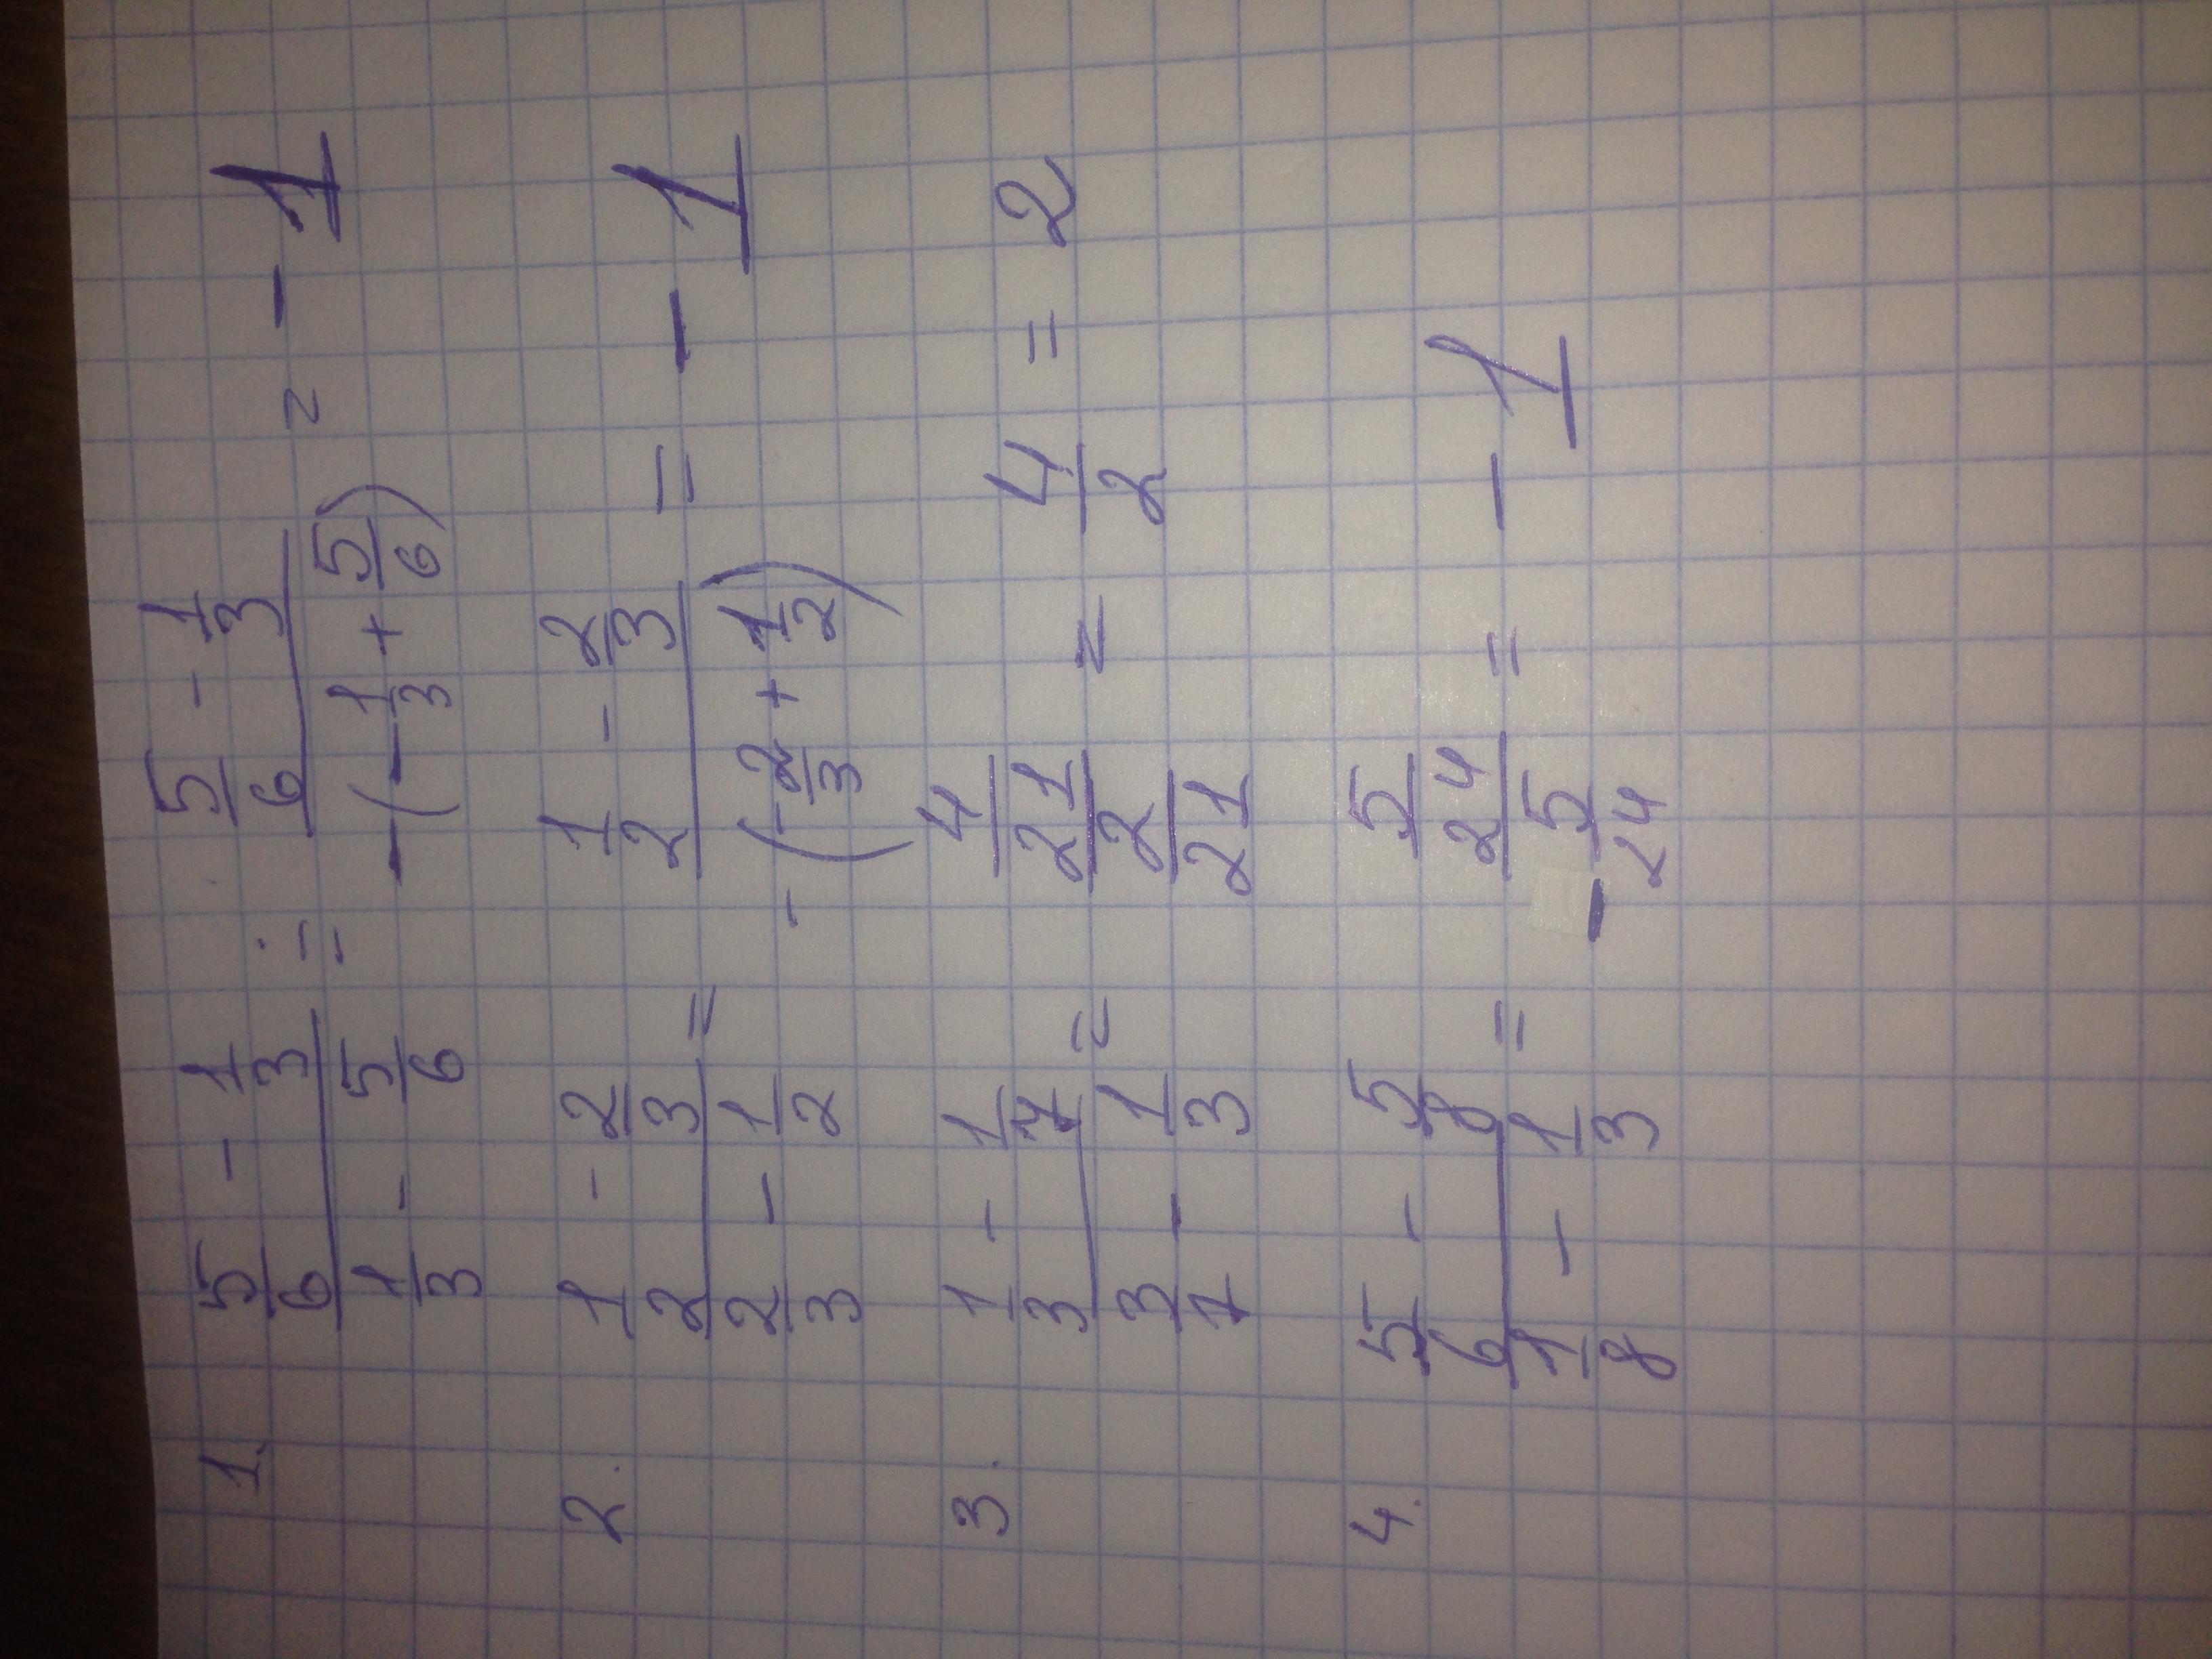 1. (5/6 - 1/3)/(1/3 - 5/6) = (5/6 - 1/3)/(-(-1/3 + 5/6)) = -1
2. (1/2 - 2/3)/(2/3 - 1/2) = (1/2 - 2/3)/(-(-2/3 + 1/2)) = -1
3. (1/3 - 1/7)/(3/7 - 1/3) = (4/21)/(2/21) = 4/2 = 2
4. (5/6 - 5/8)/(1/8 - 1/3) = (5/24)/(-5/24) = -1